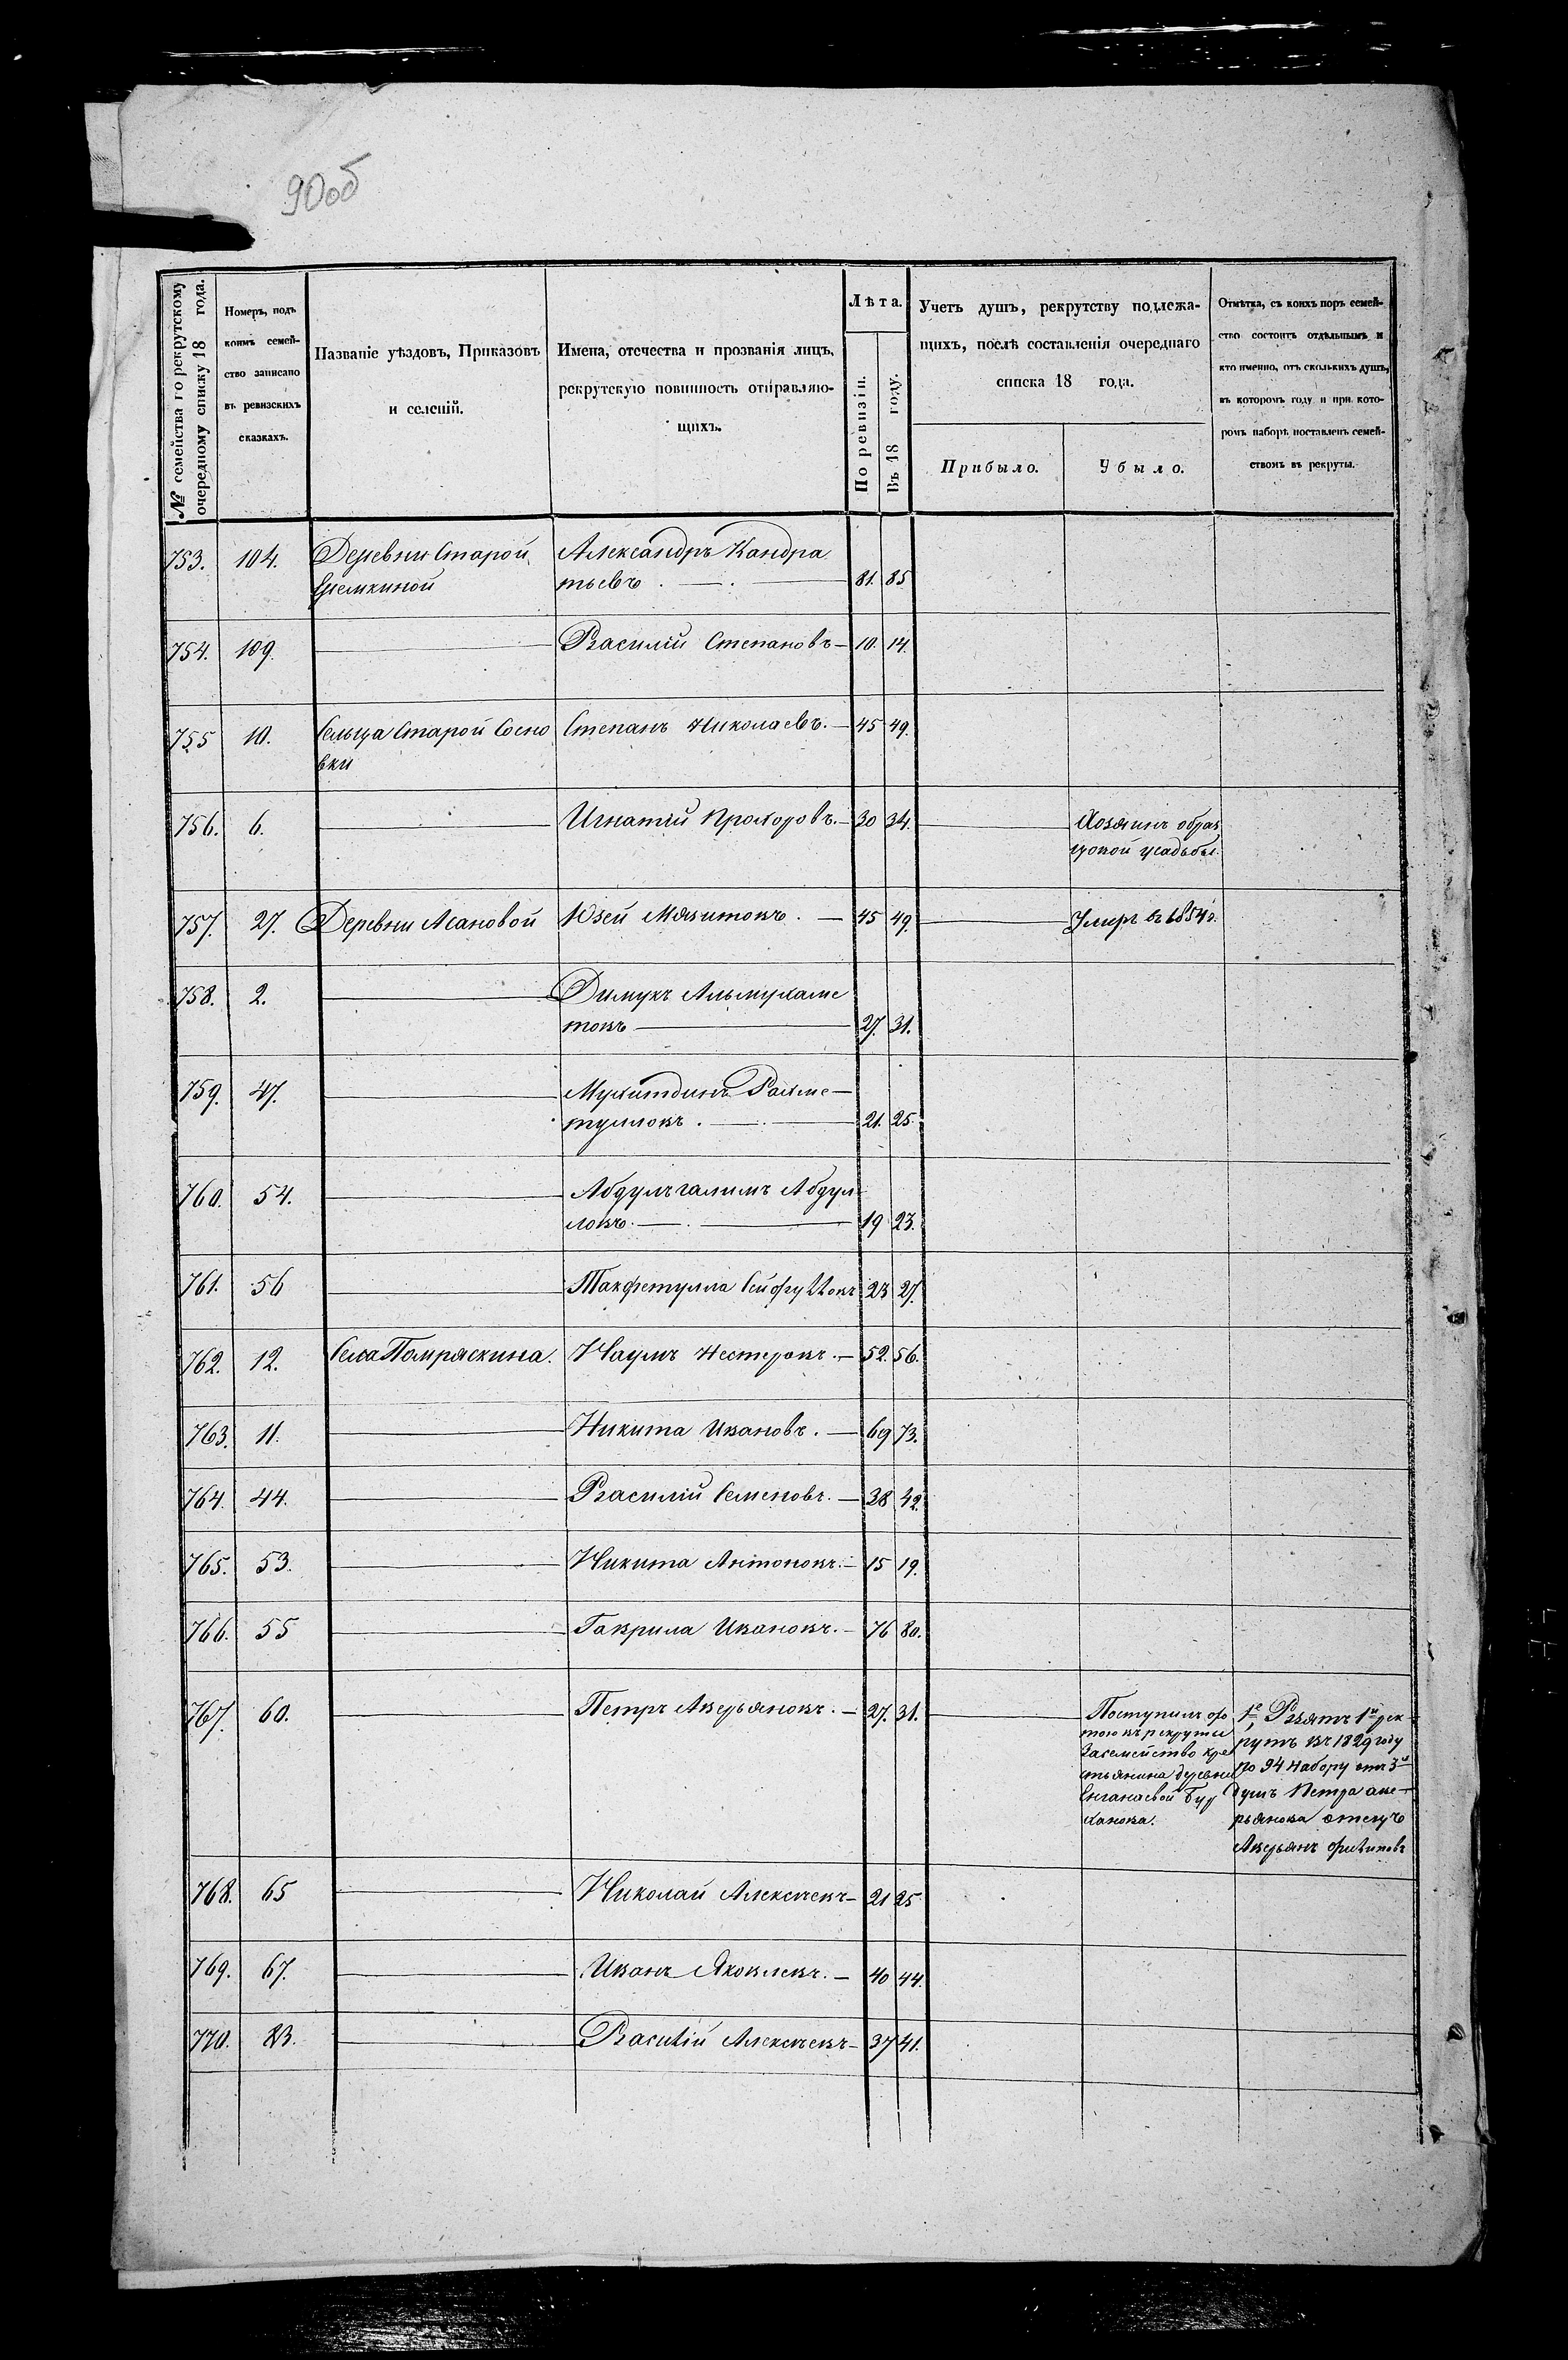 90об
№ семейства по рекрутскому очередному списку 18 года.
Номеръ, подъ коимъ семейство записано въ ревизскихъ сказкахъ.
Названіе уѣздовъ, Приказовъ и селеній.
Имена, отечества и прозванія лицъ, рекрутскую повинность отправляющихъ.
Лѣта.
По ревизіи.
Въ 18 году.
Учетъ душъ, рекрутству подлежащихъ, послѣ составленія очереднаго списка 18 года.
Прибыло.
Убыло.
Отмѣтка, съ коихъ поръ семейство состоитъ отдѣльнымъ и кто именно, отъ сколькихъ душъ, въ которомъ году и при которомъ наборѣ поставленъ семействомъ въ рекруты.
753. 104. Деревни Старой Александръ Кандра
тьевъ . — . — 81. 85
754. 109. — Василій Степановъ — 10. 14.
755 10. Сельца Старой Сосно Степанъ Николаевъ. — 45 49.
вки
756. 6. — Игнатій Прохоровъ. — 30 34. — Хозяинъ образ
цовой усадьбы.
757. 27. Деревни Асановой Юзей Мязитовъ. — 45 49. — Умеръ въ 1854 г.
758. 2. — Димукъ Альмухаме
товъ — 27. 31.
759. 47. — Мухитдинъ Рахме—
тулловъ . — . — 21. 25.
760. 54. — Абдулъгалимъ Абдул
ловъ. — . — 19 23.
761. 56 — Такфетулла Сейфулловъ 23 27.
762. 12. Села Помряскина. Наумъ Нестеровъ. — 52. 56.
763. 11. — Никита Ивановъ. — 69 73.
764. 44. — Василій Семеновъ. — 38 42.
765. 53. — Никита Антоновъ. — 15 19.
766. 55 — Гаврила Ивановъ. — 76 80.
767. 60. — Петръ Аверьяновъ. — 27. 31. —
Поступилъ охо
тою въ рекруты
за семейство кре
стьянина деревни
Енганаевой Бур
ханова.
1е, Взятъ 1й рек
рутъ въ 1829 году
по 94 набору отъ 3х
душъ Петра аве—
рьянова отецъ
Аверьянъ Филиповъ
768. 65 — Николай Алексѣевъ — 21 25
769. 67. — Иванъ Яковлевъ. — 40 44.
770. 23. — Василій Алексѣевъ — 37 41.